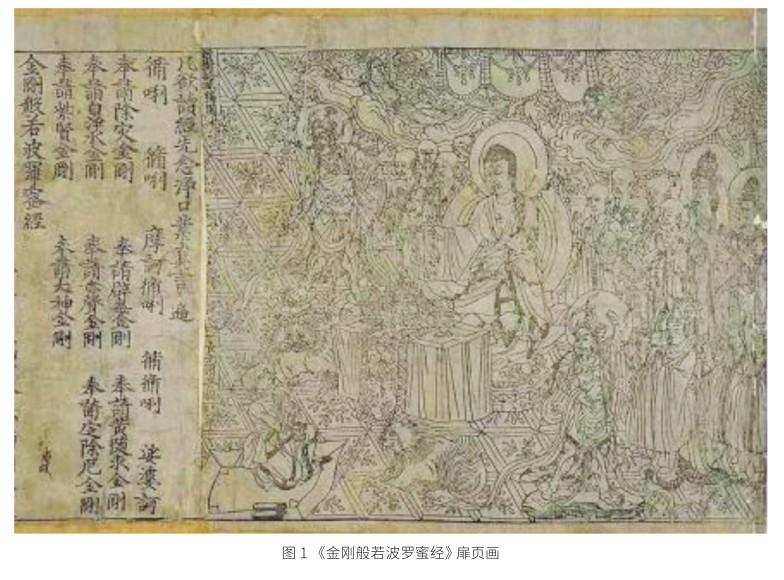 凡欲讀經先念淨口業真言一遍
脩唎 脩唎 摩訶脩唎 脩脩唎 娑婆訶
奉請除灾金剛 奉請辟毒金剛 奉請黃隨求金剛
奉請白淨水金剛 奉請赤聲金剛 奉請定除厄金剛
奉請紫賢金剛 奉請大神金剛
金剛般若波羅蜜經
图 1 《金刚般若波罗蜜经》扉页画